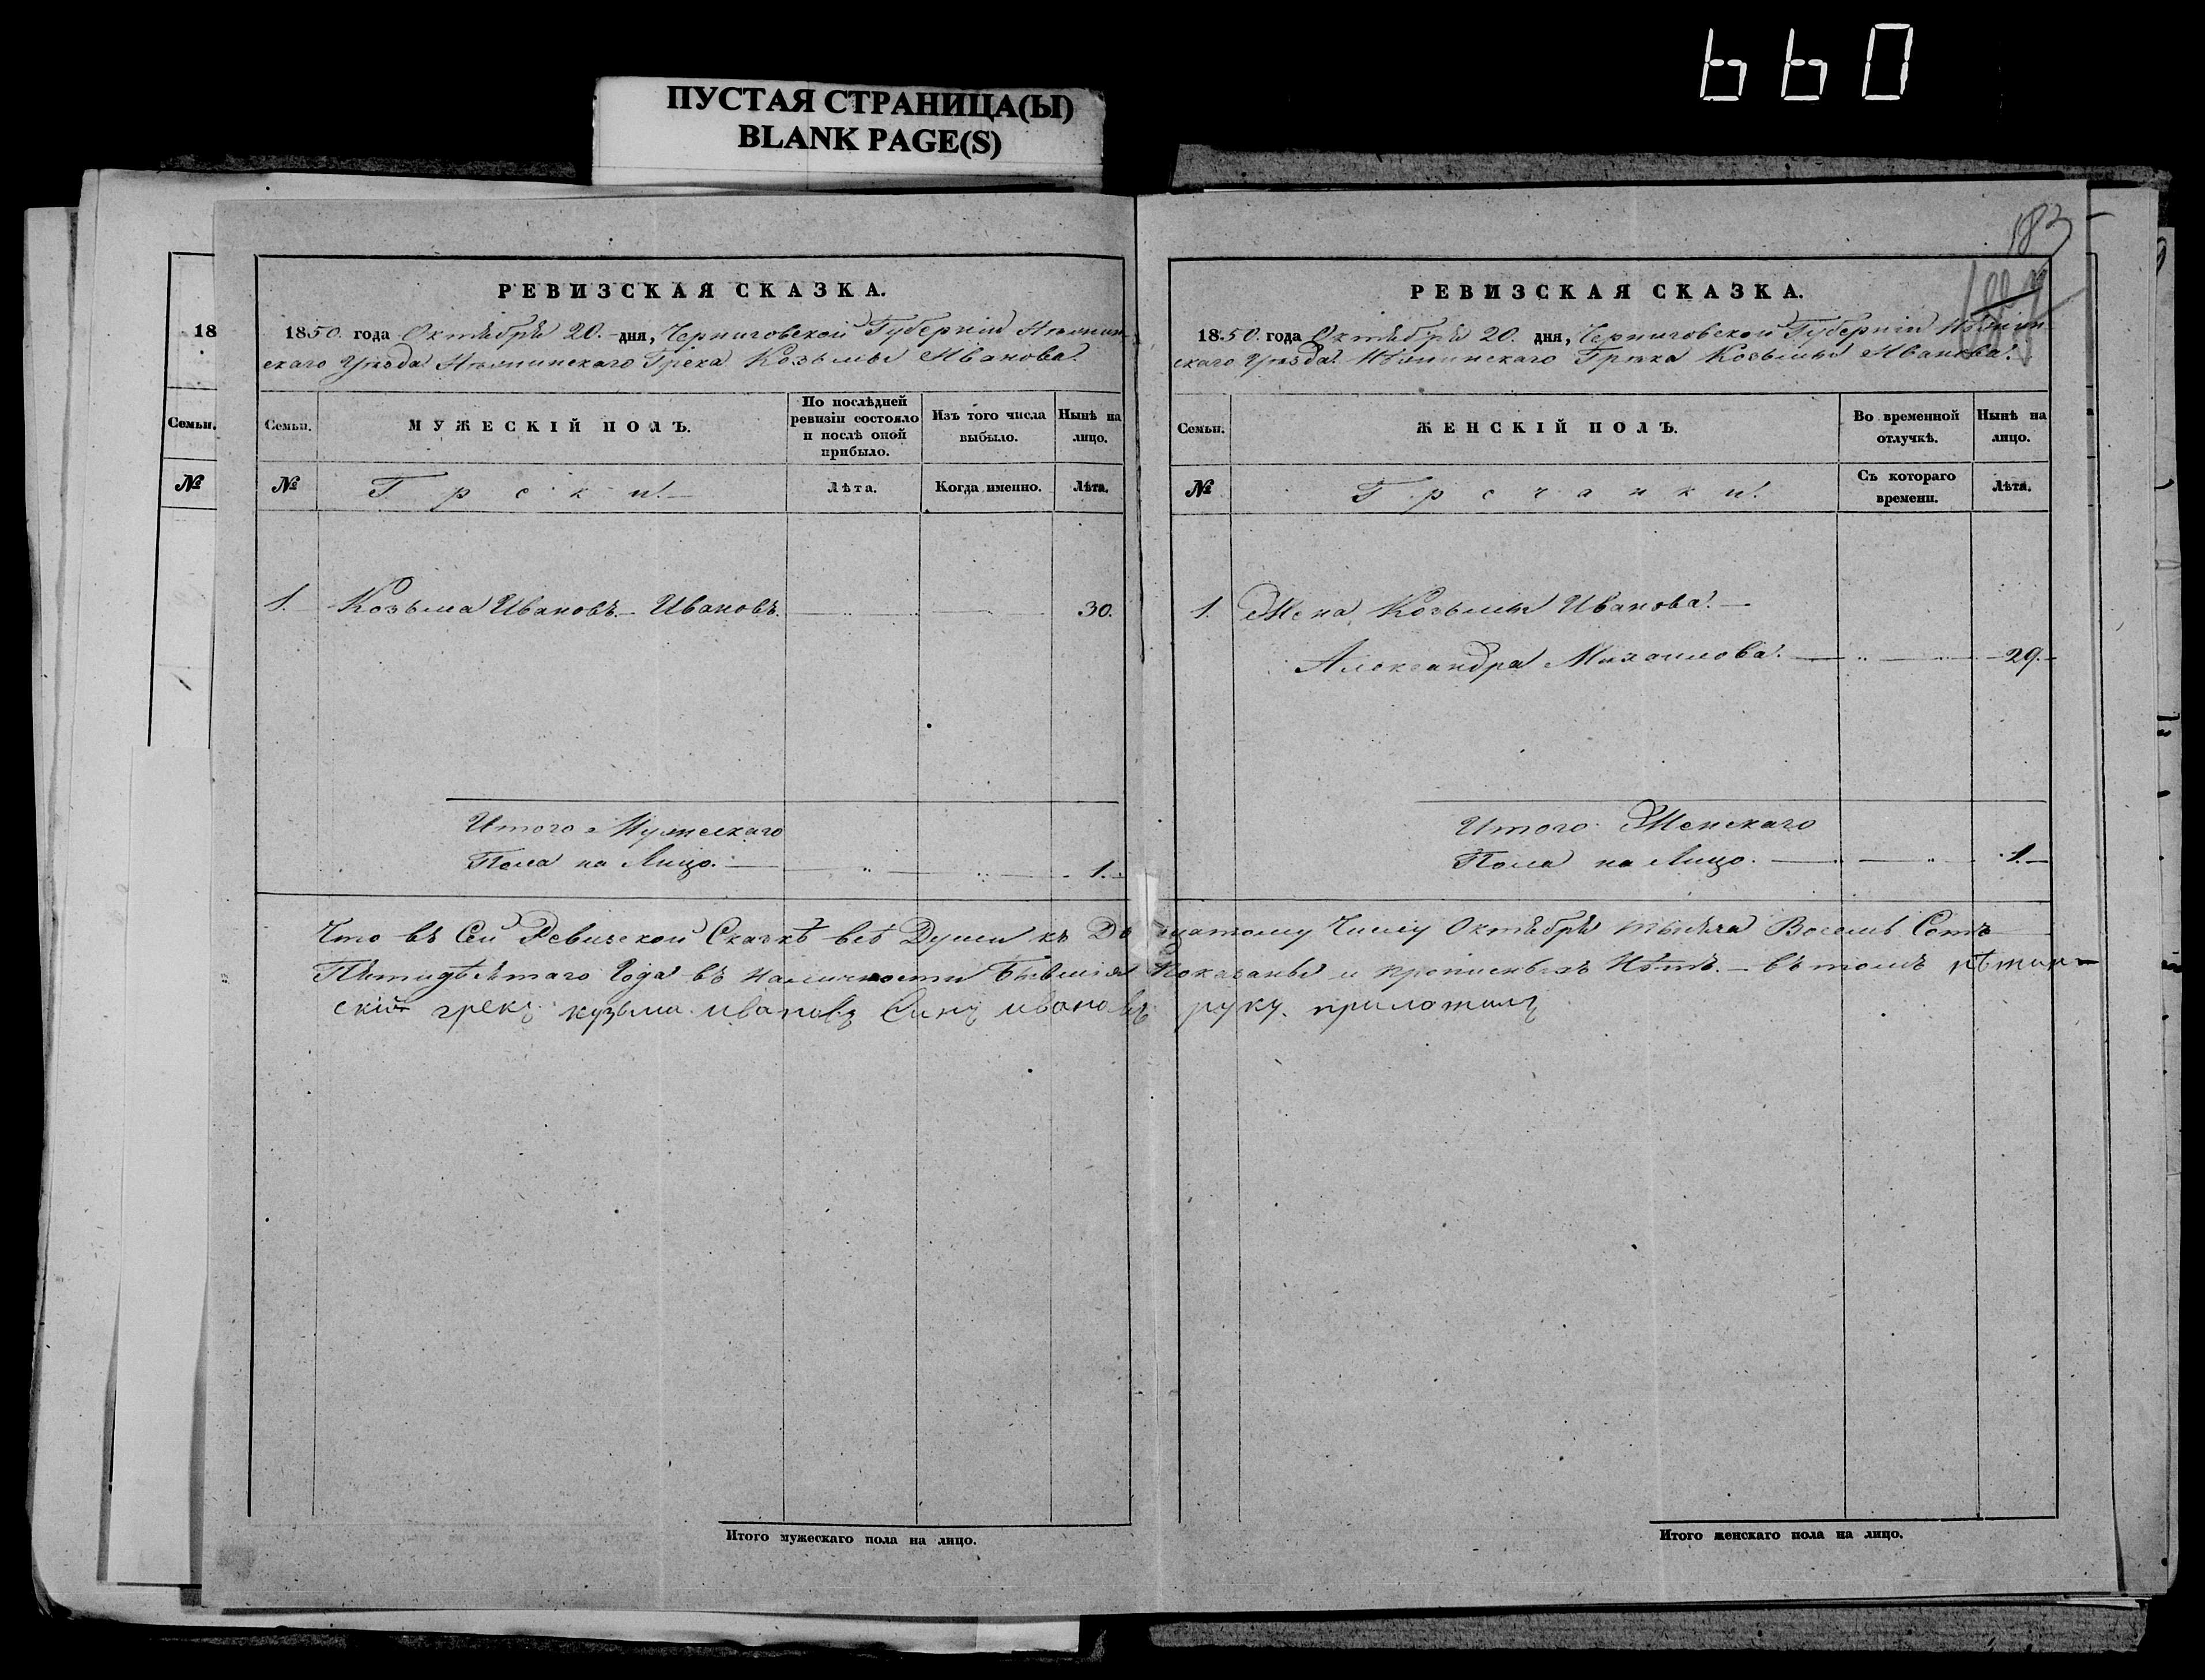 ПУСТАЯ СТРАНИЦА(Ы)
BLANK PAGE(S)
660
18
Семьи.
№
РЕВИЗСКАЯ СКАЗКА.
1850. года Октября 20. дня, Черниговской Губерніи Нѣжин-
скаго Уѣзда Нѣжинскаго Грека Козьмы Иванова.
Семьи.
МУЖЕСКІЙ ПОЛЪ.
По послѣдней ревизіи состояло и послѣ оной прибыло.
Изъ того числа выбыло.
Нынѣ на лицо.
№
Греки.
Лѣта.
Когда именно.
Лѣта.
1. Козьма Ивановъ Ивановъ. 30.
Итого Мужескаго
Пола на Лицо. 1.
Итого мужескаго пола на лицо.
183
РЕВИЗСКАЯ СКАЗКА.
1850. года Октября 20. дня, Черниговской Губерніи Нѣжин-
скаго Уѣзда Нѣжинскаго Грека Козьмы Иванова.
Семьи.
ЖЕНСКІЙ ПОЛЪ.
Во временной отлучкѣ.
Нынѣ на лицо.
№
Гречанки.
Съ котораго времени.
Лѣта.
1. Жена Козьмы Иванова.
Александра Михаилова. 29.
Итого Женскаго
Пола на Лицо. 1.
Что въ Сей Ревизской Сказкѣ всѣ Души къ Двадцатому Числу Октября тысяча Восемь Сотъ
Пятидѣсятаго Года въ наличности Бывшія Показаны и прописныхъ Нѣтъ. въ томъ нѣжин-
скій грекъ кузьма ивановъ Синъ ивановъ руку приложилъ
Итого женскаго пола на лицо.